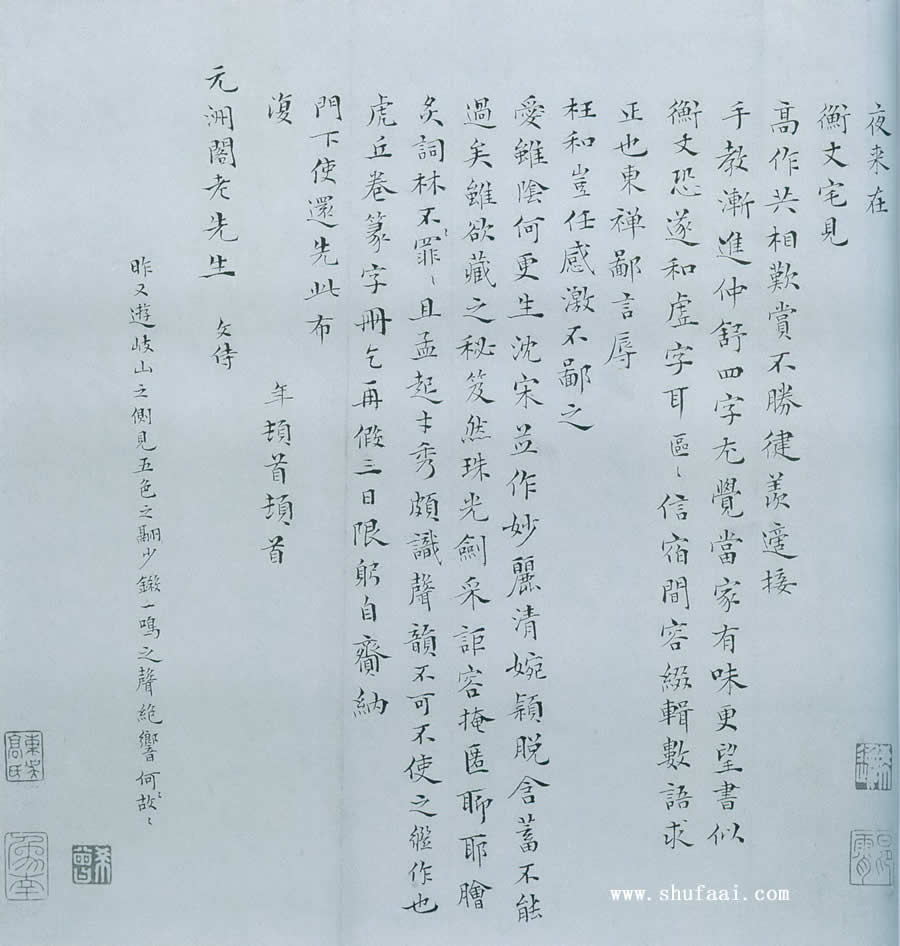 夜来在
衡丈宅見
髙作共相歎賞不勝健羨適接
手教漸進仲舒四字尤覺當家有味更望書似
衡丈恐遂和虛字耳區〻信宿間容綴輯數語求
正也東禅鄙言辱
枉和豈任感激不鄙之
愛雖陰何更生沈宋並作妙麗清婉穎脱含蓄不能
過矣雖欲藏之秘笈然珠光劍采詎容掩匿聊耶膾
炙詞林不罪〻且孟起才秀頗識聲韻不可不使之繼作也
虎丘卷篆字冊乞再假三日限躬自齎納
門下使還先此布
復
年頓首頓首
元洲閣老先生 文侍
昨又遊岐山之側見五色之翮少鎩一鳴之聲絶響何故〻
www.shufaai.com